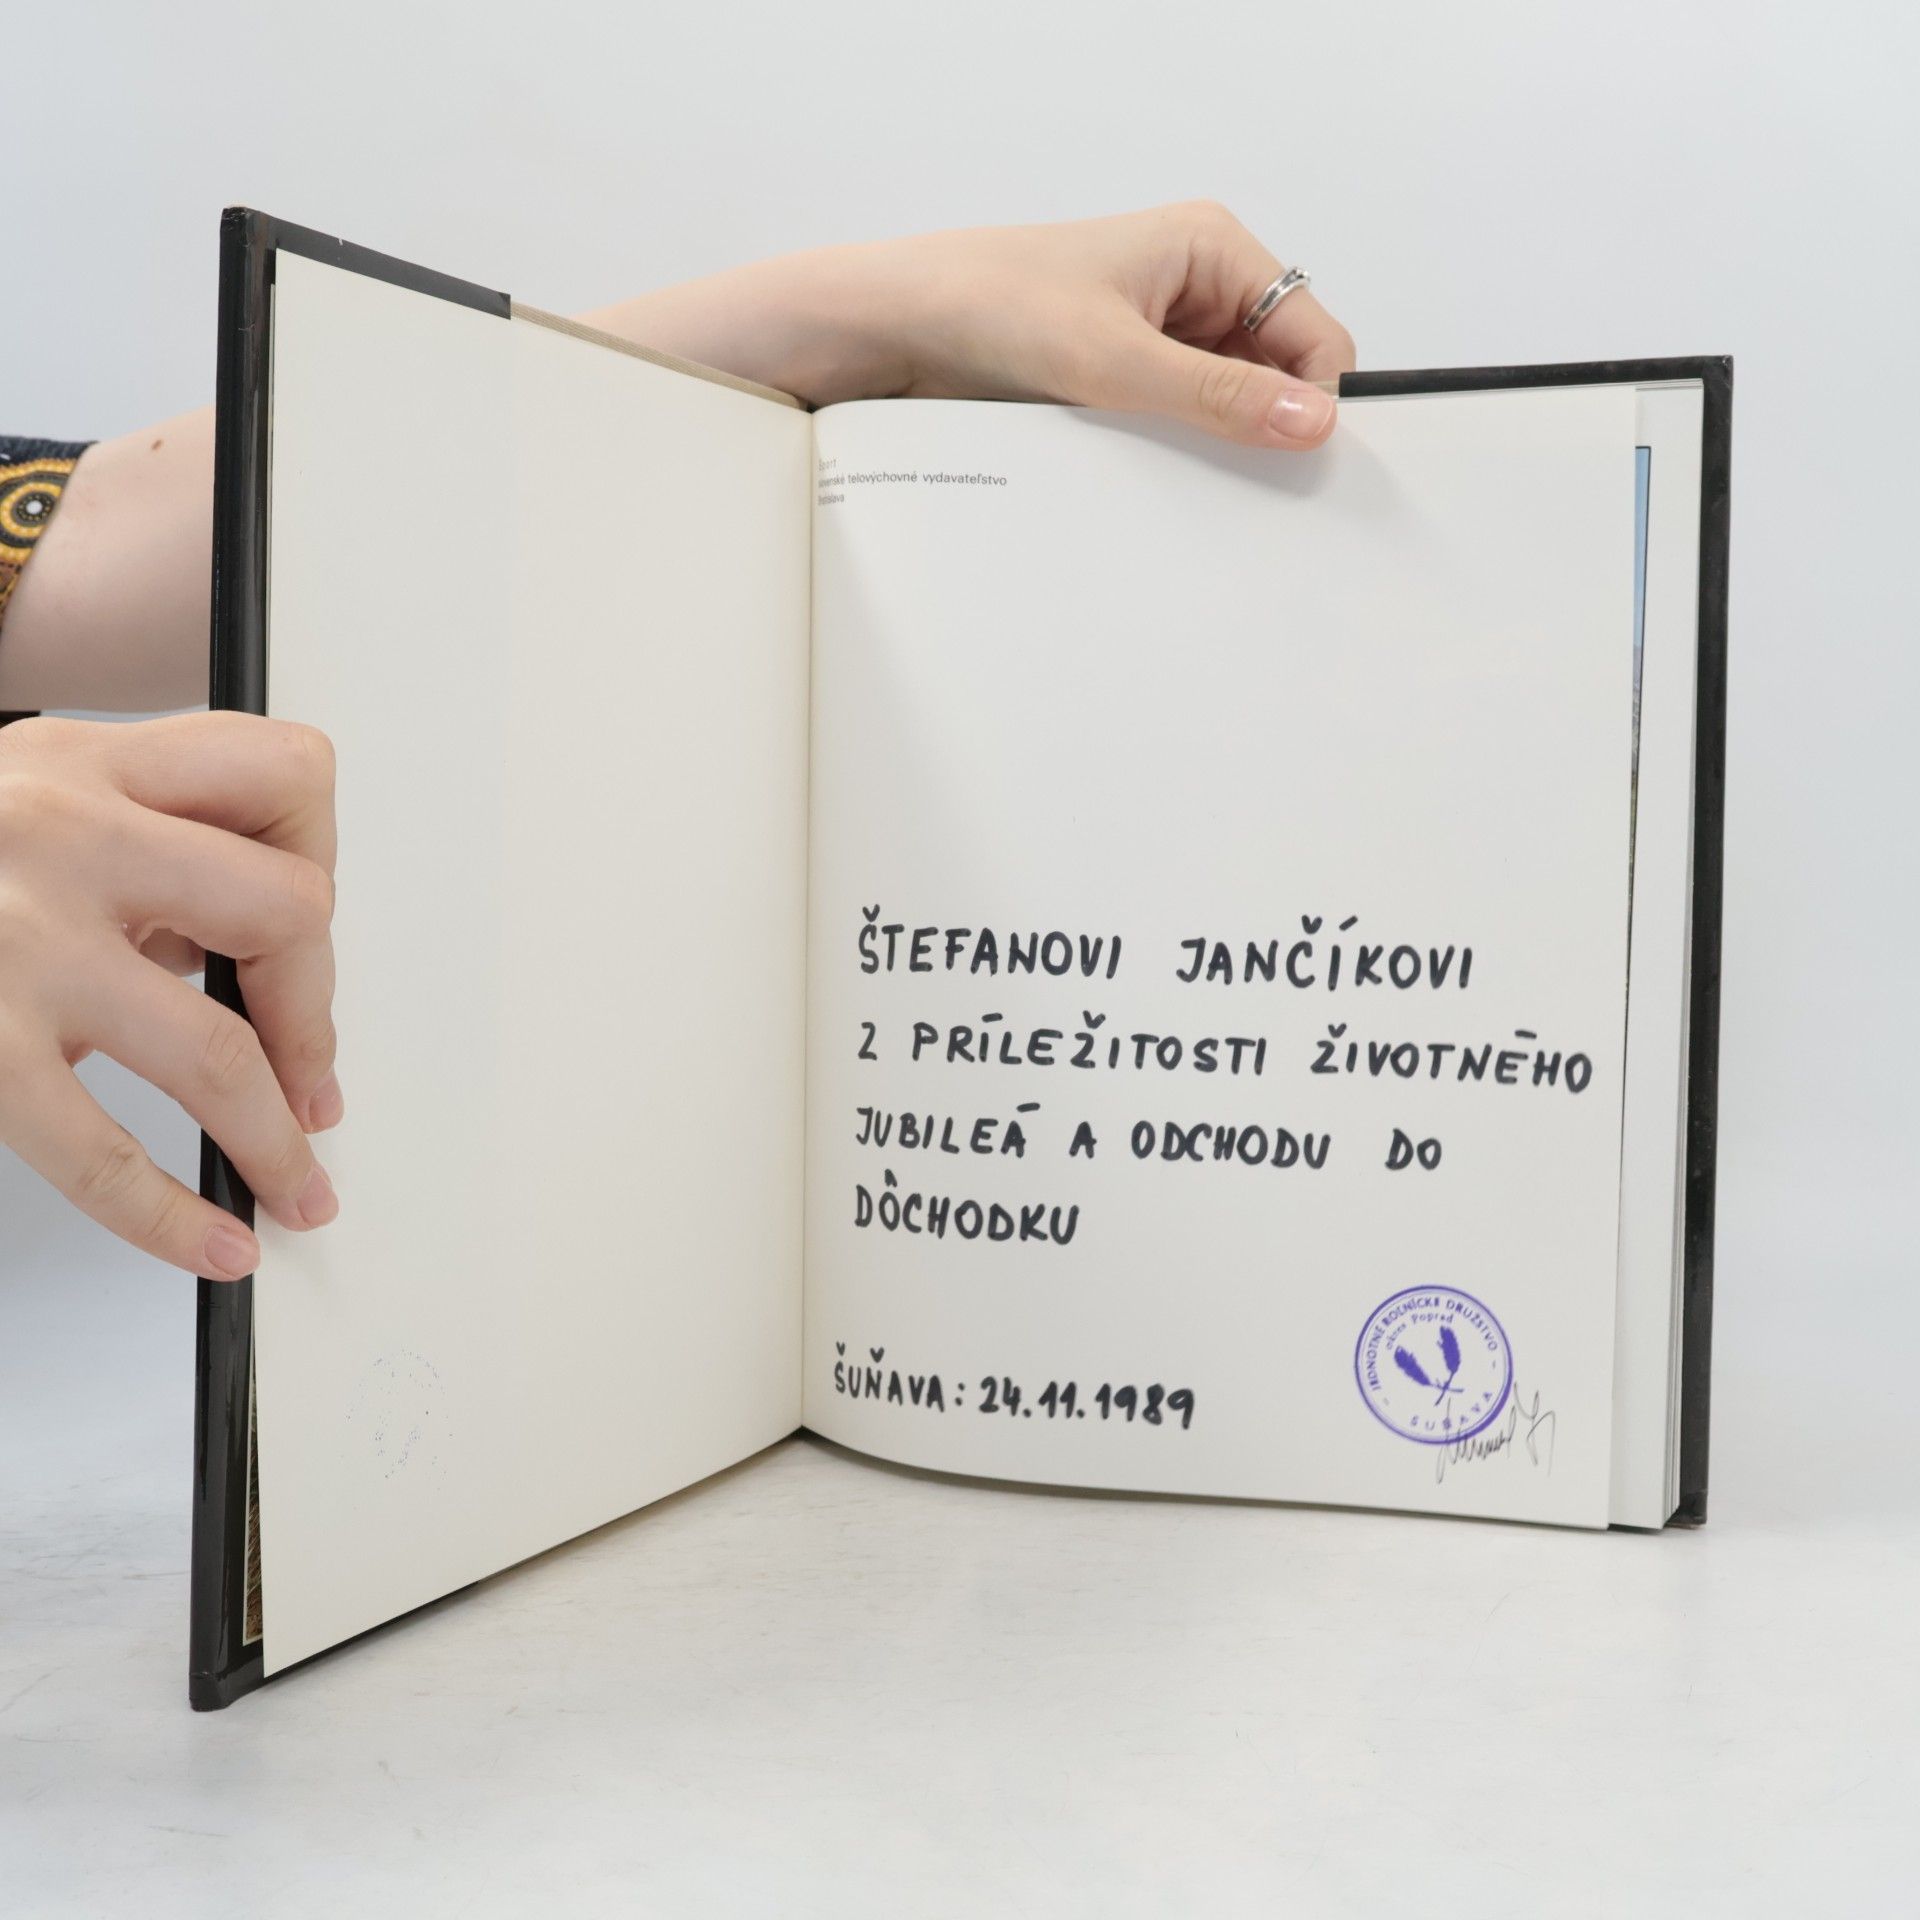 Šport
slovenské telovýchovné vydavateľstvo
Bratislava
ŠTEFANOVI JANČÍKOVI
Z PRÍLEŽITOSTI ŽIVOTNÉHO
JUBILEÁ A ODCHODU DO
DÔCHODKU
ŠUŇAVA: 24.11.1989
JEDNOTNÉ ROĽNÍCKE DRUŽSTVO
okres Poprad
ŠUŇAVA